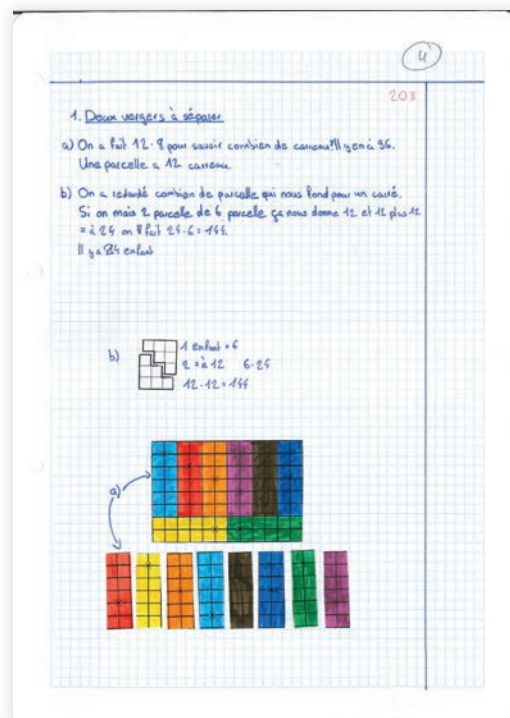 4
203
1. Deux vergers à séparer
a) On a fait 12·8 pour savoir combien de carreau! Il y en à 96.
Une parcelle a 12 carreau.
b) On a redardé combien de parcelle qui nous fond pour un carré.
Si on mais 2 parcelle de 6 parcelle ça nous donne 12 et 12 plus 12
= à 24 on fait 24·6 = 144.
Il y a 24 enfant
b)
1 enfant = 6
2 = à 12 6·24
12·12 = 144
a)